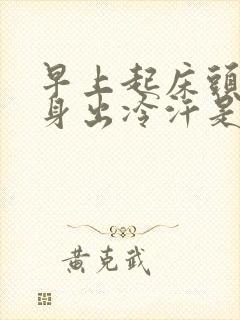 早上起床頭
身出冷汗是
黃克武